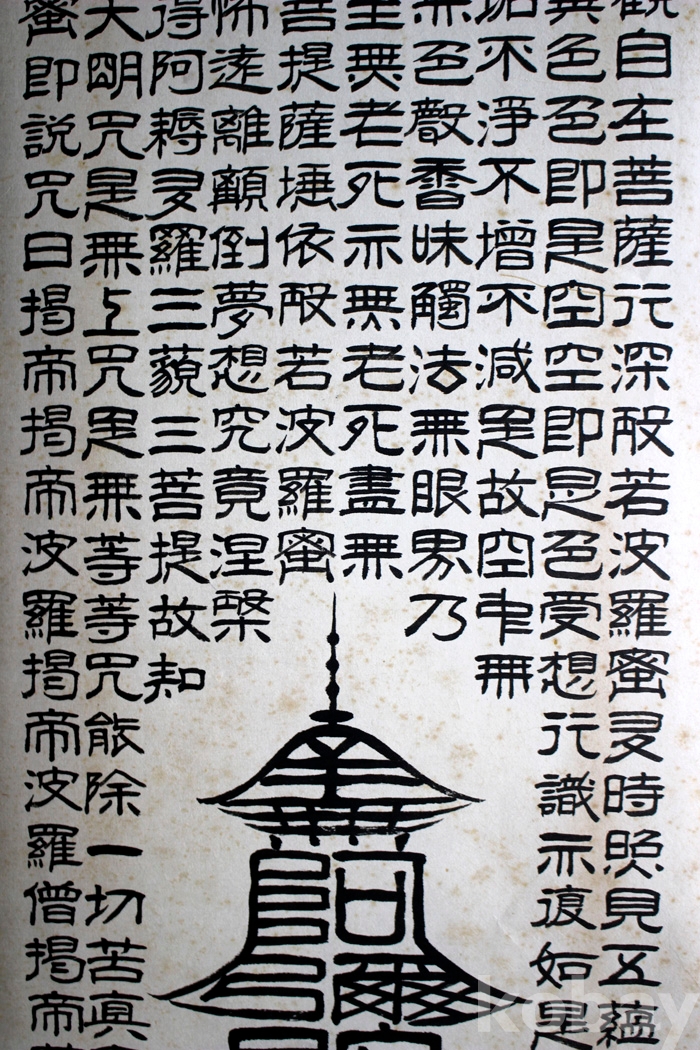 觀自在菩薩行深般若波羅蜜多時照見五蘊
異色色即是空空即是色受想行識亦復如是
垢不淨不增不減是故空中無
無色聲香味觸法無眼界乃
至無老死亦無老死盡無
菩提薩埵依般若波羅蜜
怖遠離顛倒夢想究竟涅槃
得阿耨多羅三藐三菩提故知
大明咒是無上咒是無等等咒能除一切苦真
蜜即說咒曰揭帝揭帝波羅揭帝波羅僧揭帝
無阿彌
kobay